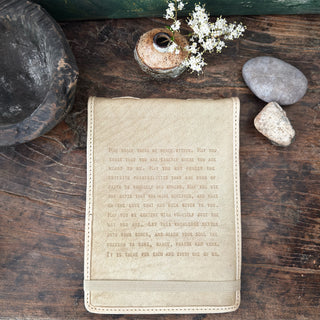 May today there be peace within. May you
trust that you are exactly where you are
meant to be. May you not forget the
infinite possibilities that are born of
faith in yourself and others. May you use
the gifts that you have received, and pass
on the love that has been given to you.
May you be content with yourself just the
way you are. Let this knowledge settle
into your bones, and allow your soul the
freedom to sing, dance, praise and love.
It is there for each and every one of us.